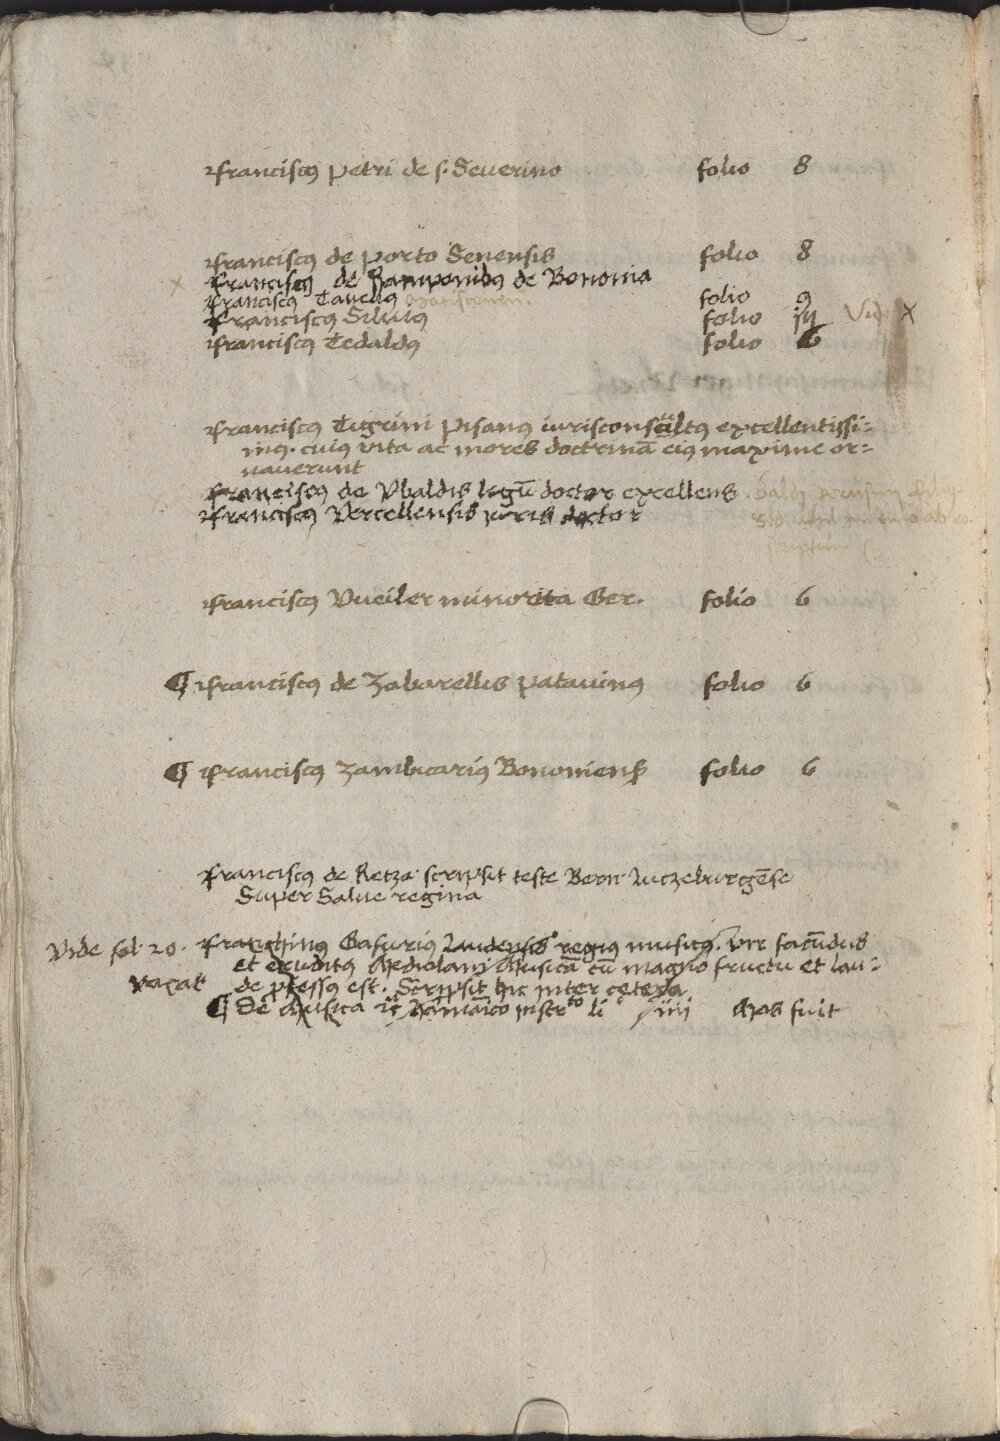 Franciscꝰ petri de s. Seuerino folio 8
Franciscꝰ de porto Senensis folio 8
Franciscꝰ de Ramponibꝰ de Bononia
Franciscꝰ folio 9
Franciscꝰ Siluiꝰ folio
Franciscꝰ Tedaldꝰ folio 6
Franciscꝰ Tigrini pisanꝰ iurisconsultꝰ excellentissi=
mꝰ. cuiꝰ vita ac mores doctrinā eiꝰ maxime or=
nauerunt
Franciscꝰ de Vbaldis legū doctor excellens
Franciscꝰ Vercellensis iuris doctor
Franciscꝰ Vueiler minorita Ger. folio 6
¶ Franciscꝰ de Zabarellis patauinꝰ folio 6
¶ Franciscꝰ Zambicariꝰ Bononiensꝭ folio 6
Franciscꝰ de Retza scripsit teste Bern Luczeburgēse
Super Salue regina
Vide fol. 20. Franchinꝰ Gafuriꝰ Laudensis regiꝰ musicꝰ. vir facūdus
et eruditꝰ Mediolani Musicā cū magno fructu et lau=
vacat de ꝓfessꝰ est. Scripsit hic inter cetera
¶ De Musica li iiij Mos fuit